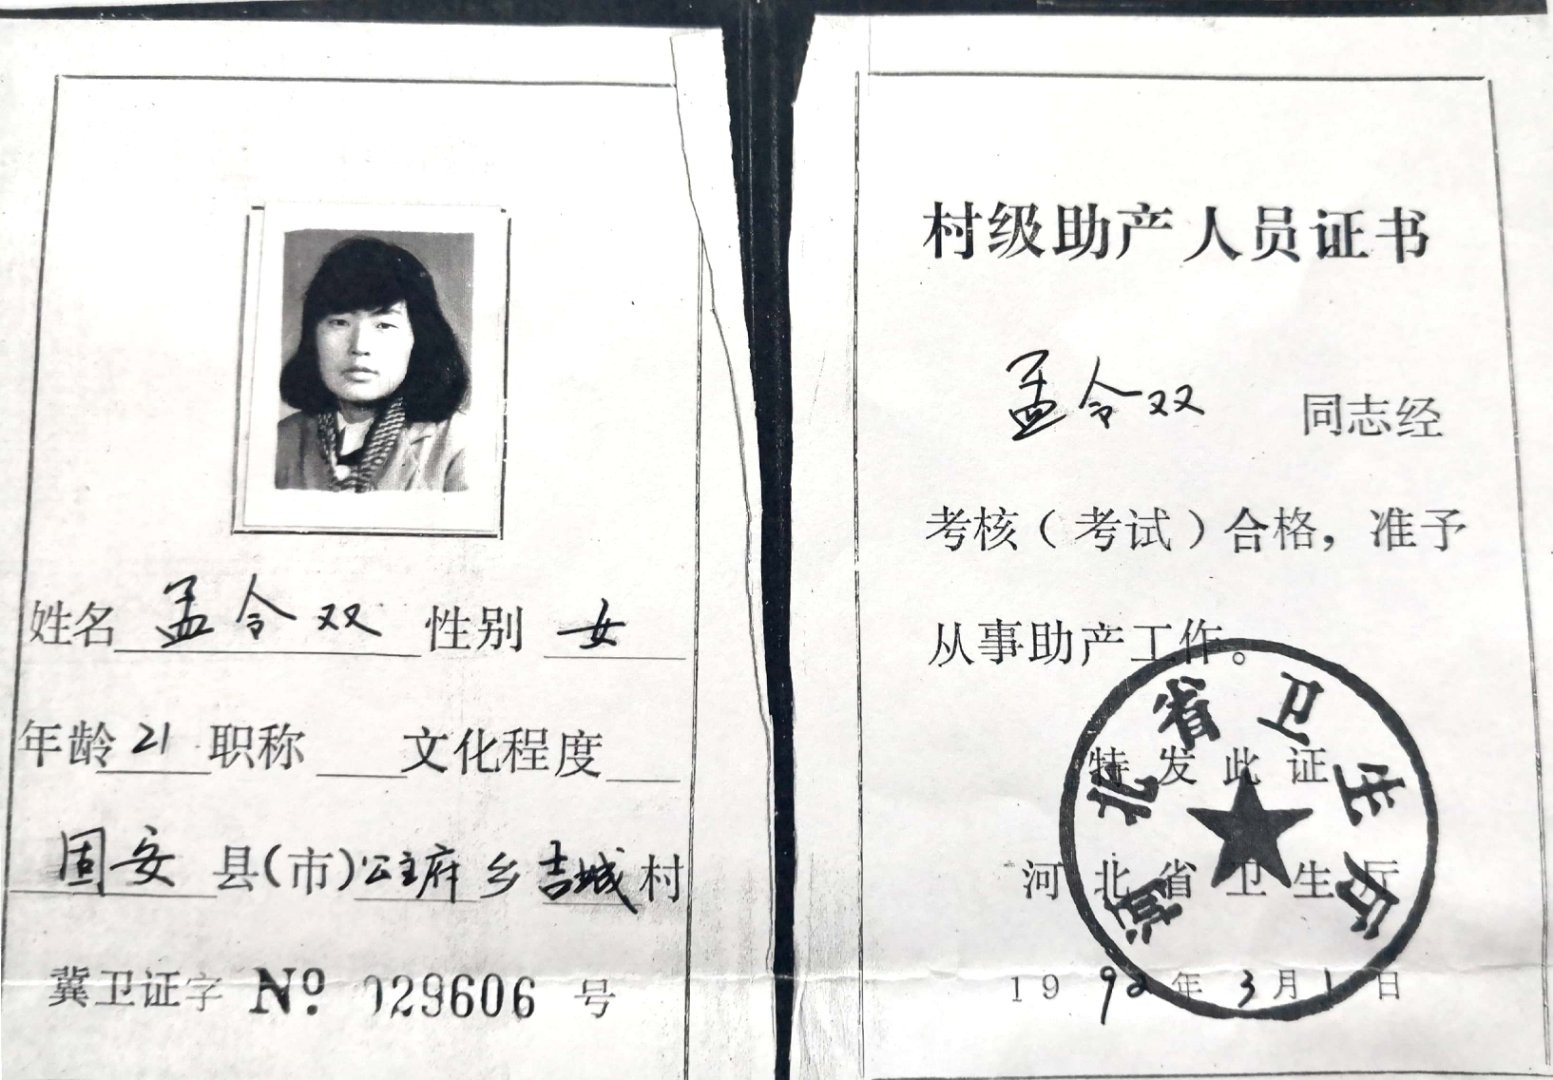 姓名 孟令双 性别 女
年龄 21 职称 文化程度
固安 县(市)公主府 乡 吉城 村
冀卫证字 No. 029606 号
村级助产人员证书
孟令双 同志经
考核(考试)合格,准予
从事助产工作。
特发此证
河北省卫生厅
1992年3月1日
河北省卫生厅